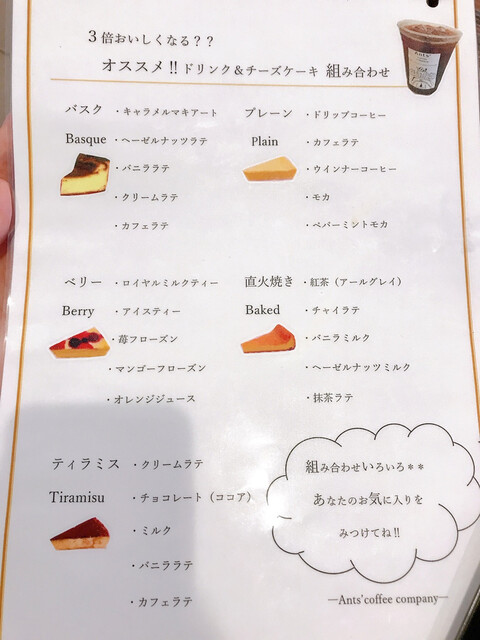 3倍おいしくなる??
オススメ!!ドリンク&チーズケーキ 組み合わせ
バスク
Basque
・キャラメルマキアート
・ヘーゼルナッツラテ
・バニララテ
・クリームラテ
・カフェラテ
プレーン
Plain
・ドリップコーヒー
・カフェラテ
・ウインナーコーヒー
・モカ
・ペパーミントモカ
ベリー
Berry
・ロイヤルミルクティー
・アイスティー
・苺フローズン
・マンゴーフローズン
・オレンジジュース
直火焼き
Baked
・紅茶(アールグレイ)
・チャイラテ
・バニラミルク
・ヘーゼルナッツミルク
・抹茶ラテ
ティラミス
Tiramisu
・クリームラテ
・チョコレート(ココア)
・ミルク
・バニララテ
・カフェラテ
組み合わせいろいろ**
あなたのお気に入りを
みつけてね!!
―Ants'coffee company―